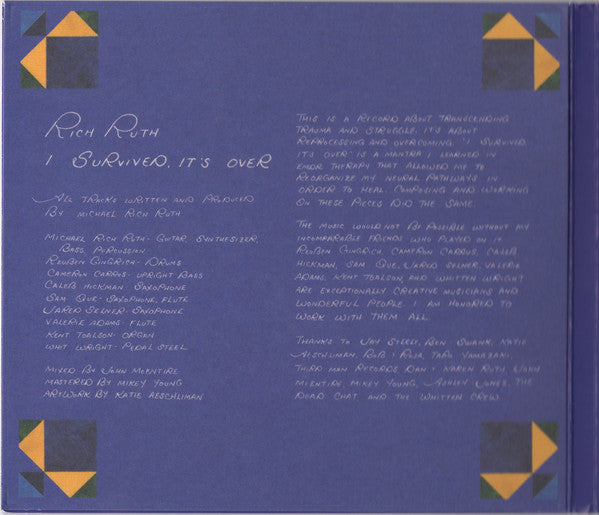 RICH RUTH
I SURVIVED, IT'S OVER
ALL TRACKS WRITTEN AND PRODUCED
BY MICHAEL RICH RUTH
MICHAEL RICH RUTH- GUITAR, SYNTHESIZER,
BASS, PERCUSSIAN
REUBEN GINGRICH- DRUMS
CAMERON CARRUS- UPRIGHT BASS
CALEB HICKMAN SAXOPHONE
SAM QUE- SAXOPHONE, FLUTE
JARED SELNER SAXOPHONE
VALERIE ADAMS- FLUTE
KENT TOALSON- ORGAN
WHIT WRIGHT- PEDAL STEEL
MIXED BY JOHN MCENTIRE
MASTERED BY MIKEY YOUNG
ARTWORK BY KATIE AESCHLIMAN
THIS IS A RECORD ABOUT TRANSCENDING
TRAUMA AND STRUGGLE. IT'S ABOUT
REPROCESSING AND OVERCOMING. "I SURVIVED,
IT'S OVER" IS A MANTRA I LEARNED IN
EMDR THERAPY THAT ALLOWED ME TO
REORGANIZE MY NEURAL PATHWAYS IN
ORDER TO HEAL. COMPOSING AND WORKING
ON THESE PIECES DID THE SAME.
THE MUSIC WOULD NOT BE POSSIBLE WITHOUT MY
INCOMPARABLE FRIENDS WHO PLAYED ON IT.
REUBEN GINGRICH CAMERON CARRUS, CALEB
HICKMAN, SAM QUE, JARED SELNER, VALERIE
ADAMS, KENT TOALSON, AND WHITTEN WRIGHT
ARE EXCEPTIONALLY CREATIVE MUSICIANS AND
WONDERFUL PEOPLE. I AM HONORED TO
WORK WITH THEM ALL.
THANKS TO JAY STEELY, BEN SWANK, KATIE
AESCHLIMAN, ROB + TARO YAMAZAKI,
THIRD MAN RECORDS, DAN + KAREN RUTH, JOHN
MCENTIRE, MIKEY YOUNG, ASHLEY JONES, THE
ROAD CHAT, AND THE WHITTEN CREW.